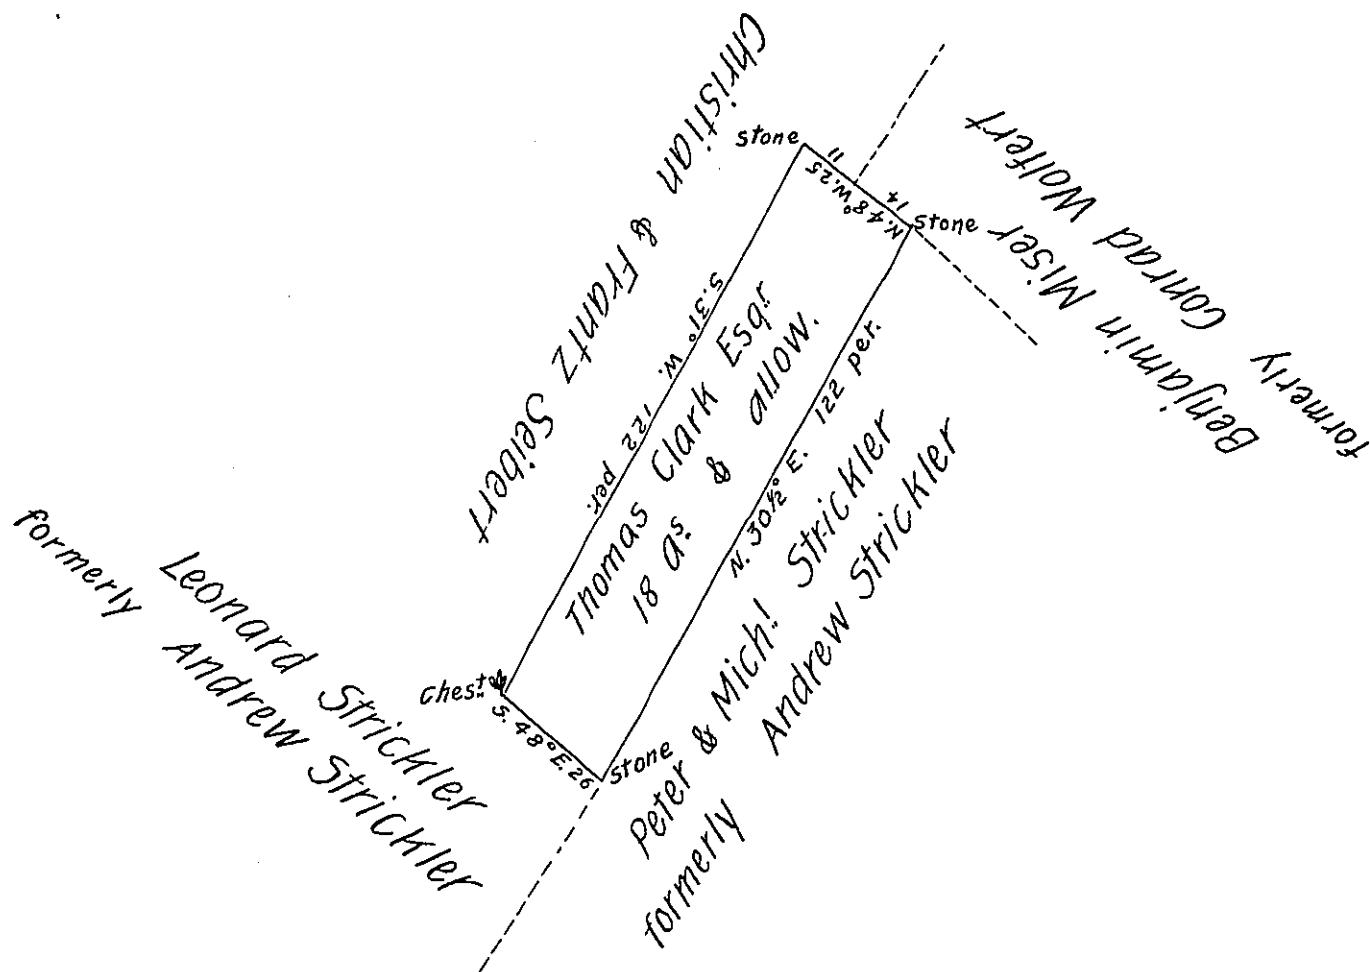 Christian & Frantz Seibert
stone
11
N. 48° W. 25
14
stone
formerly
Conrad Wolfert
Benjamin Miser
S. 31° W. 122 per.
Thomas Clark Esqr.
18 as. & allow.
N. 30 1/2° E. 122 per.
Peter & Michl. Strickler
formerly Andrew Strickler
Leonard Strickler
formerly Andrew Strickler
Chest.
S. 48° E. 26
stone